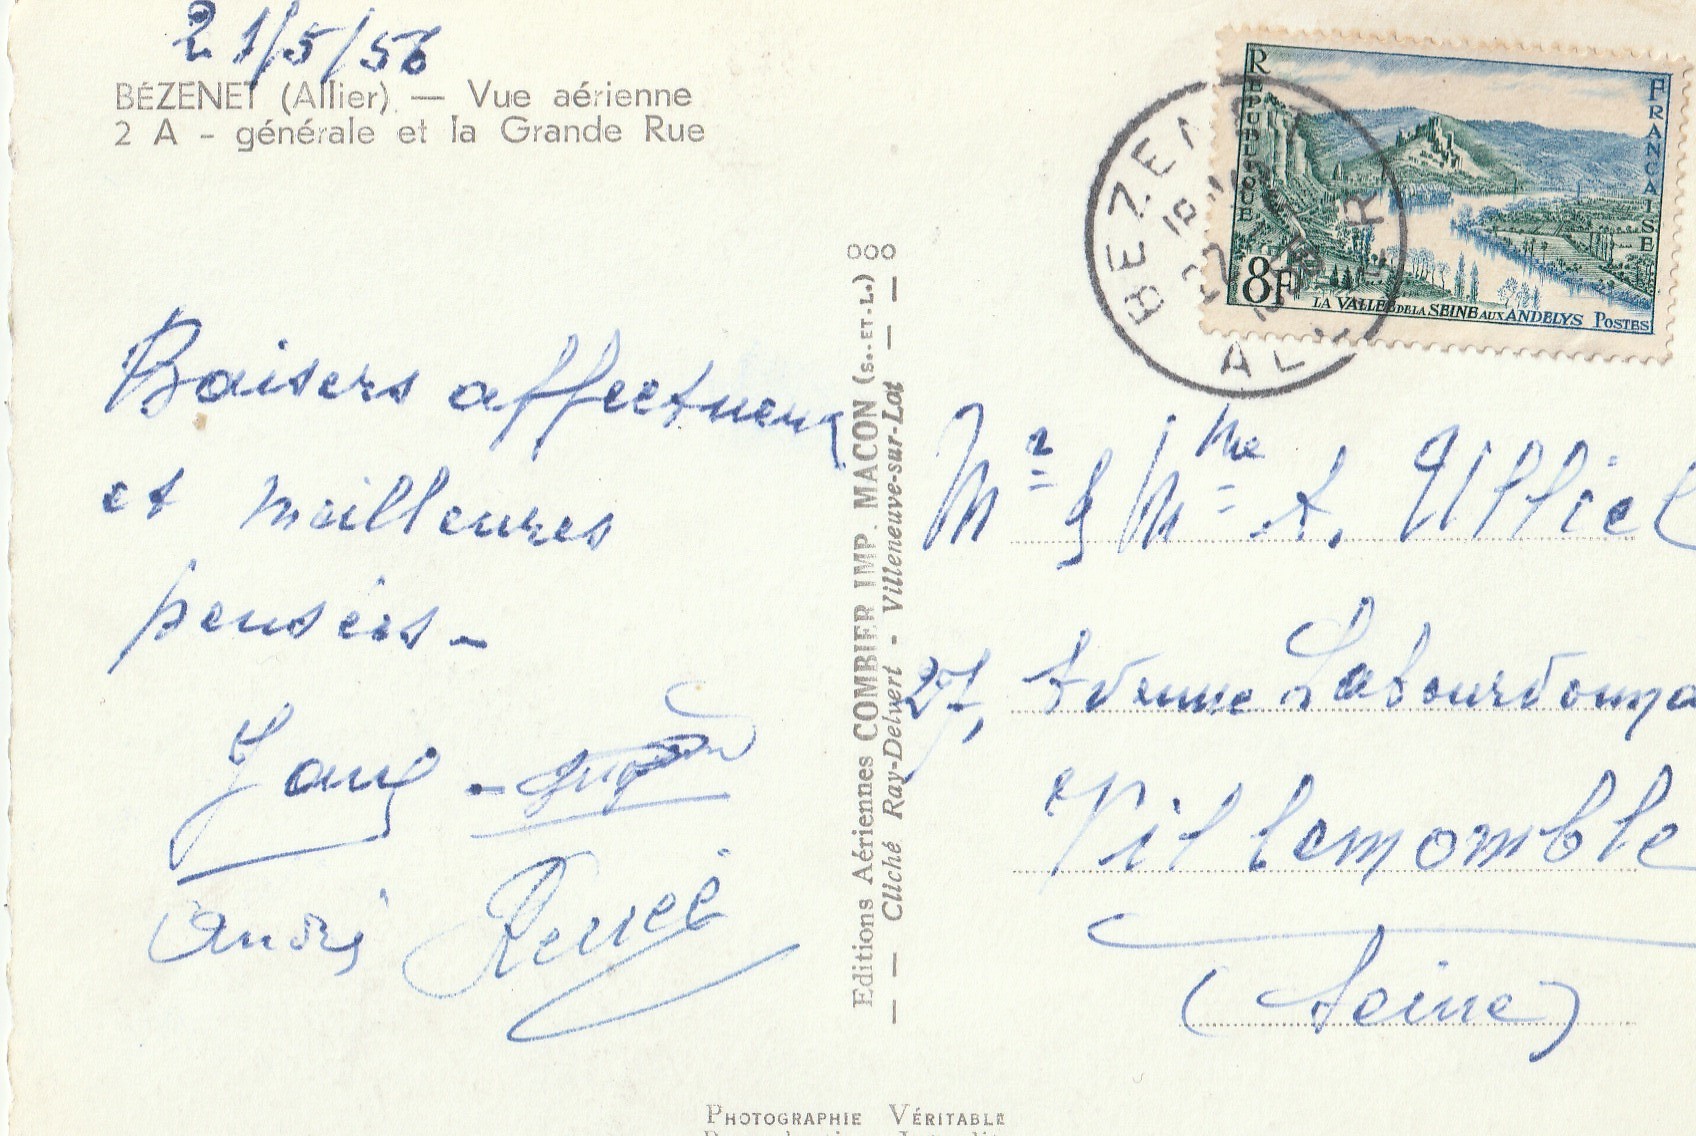 21/5/56
BÉZENET (Allier) — Vue aérienne
2 A - générale et la Grande Rue
Baisers affectueux
et meilleures
pensées -
André Renée
Editions Aériennes COMBIER IMP. MACON (S.-ET-L.)
— Cliché Ray-Delvert - Villeneuve-sur-Lot — —
RÉPUBLIQUE FRANÇAISE
8F
LA VALLÉE DE LA SEINE AUX ANDELYS POSTES
BEZENET
18
22
ALLIER
Mr & Mme A.
27, Avenue Labourdonna
Villemomble
(Seine)
PHOTOGRAPHIE VÉRITABLE